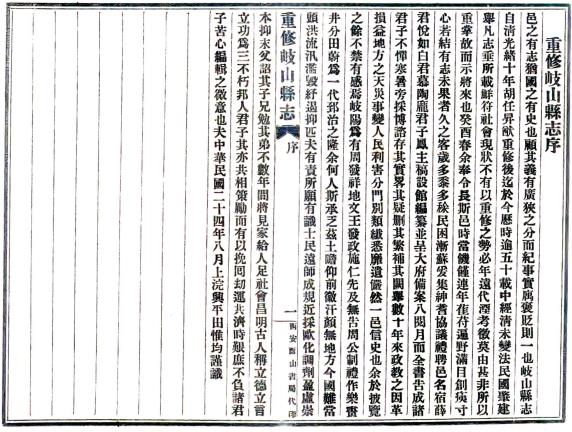 重修岐山縣志序
邑之有志猶國之有史也顧其義有廣狹之分而紀事實屬褒貶則一也岐山縣志
自清光緒十年胡任昇猷重修後迄於今歷時逾五十載中經清末變法民國肇建
舉凡志乘所載鮮符社會現狀不有以重修之勢必年遠代湮考徵莫由甚非所以
重掌故而示將來也癸酉春余奉令長斯邑時當饑饉連年萑苻遍野滿目創痍寸
心若結有志未果者久之客歲多黍多稌民困漸蘇爰集紳耆協議禮聘邑名宿薛
君悅如白君慕陶龐君子鳳主稿設館編纂並呈大府備案八閱月而全書告成諸
君子不憚寒暑旁採博諮存其實畧其疑刪其繁補其闕舉數十年來政教之因革
損益地方之天災事變人民利害分門別類纖悉靡遺儼然一邑信史也余於披覽
之餘不禁有感焉岐陽爲有周發祥地文王發政施仁先及無告周公制禮作樂畫
井分田蔚爲一代郅治之隆余何人斯承乏茲土瞻仰前徽汗顏無地方今國難當
頭洪流汎濫毀紓遏抑匹夫有責所願有識士民遠師成規近採歐化調劑盈虛崇
重修岐山縣志
序
一
西安酉山書局代印
本抑末父詔其子兄勉其弟不數年間將見家給人足社會昌明古人稱立德立言
立功爲三不朽邦人君子其亦共相策勵而有以挽回刼運共濟時艱庶不負諸君
子苦心編輯之微意也夫中華民國二十四年八月上浣興平田惟均謹識